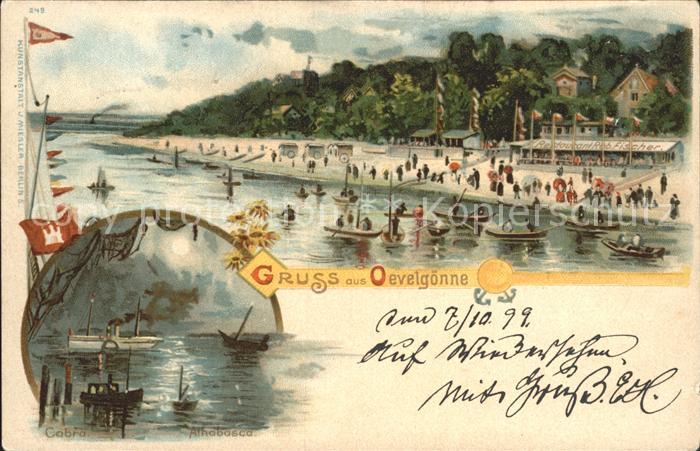 249
KUNSTANSTALT J. MIESLER, BERLIN S.
Restaurant Rob. Fischer.
GRUSS aus Oevelgönne
7/10. 99.
Auf Wiedersehen.
mit Gruß. EH.
Cobra. Athabasca.